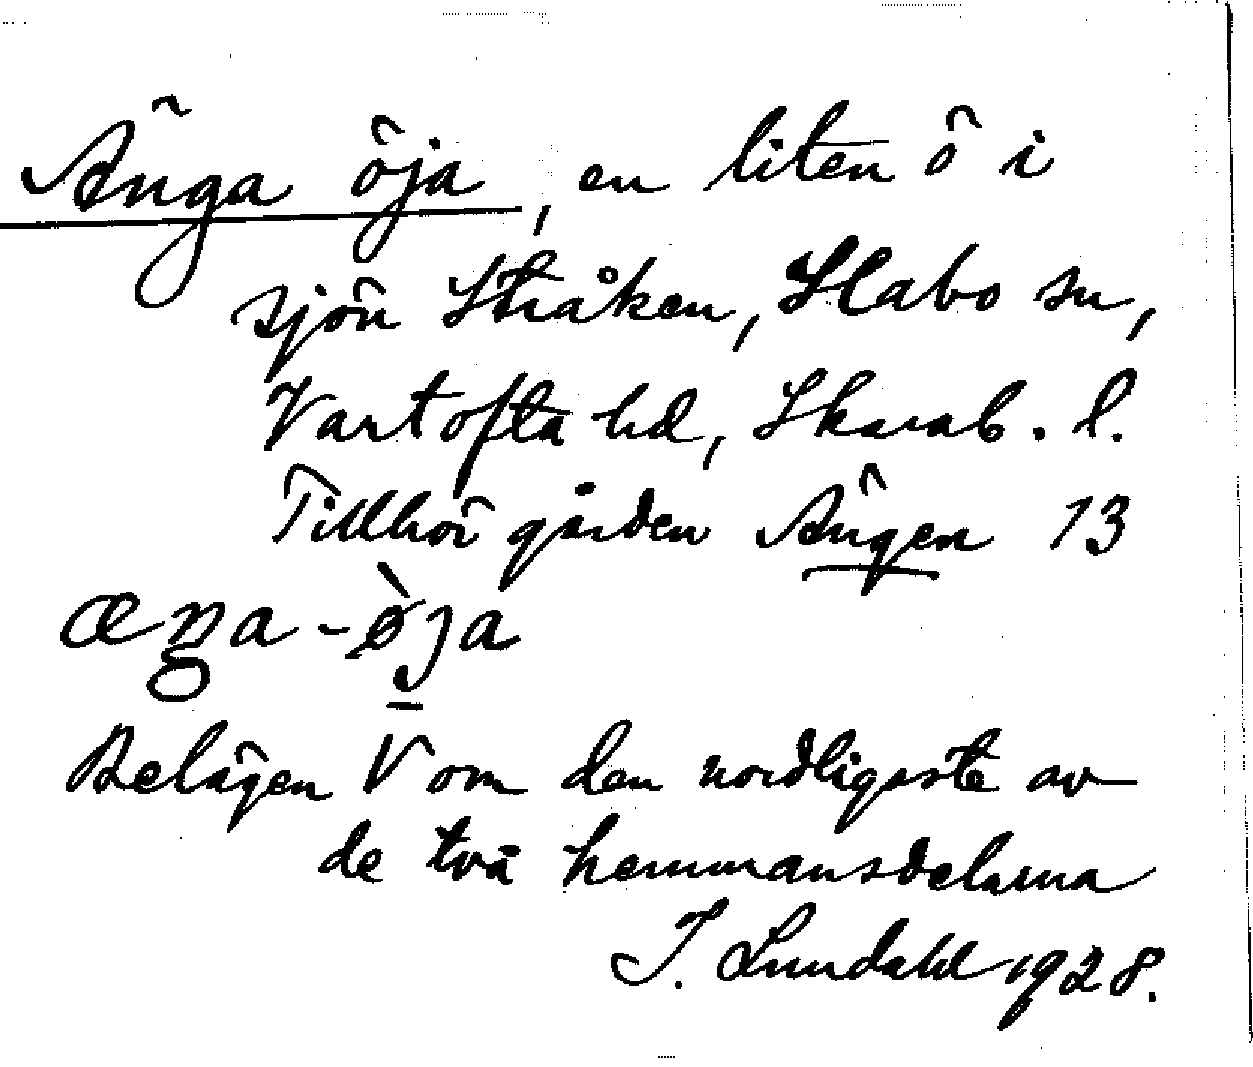 Änga öja, en liten ö i
sjön Stråken, Habo sn,
Vartofta hd, Skarab. l.
Tillhör gården Ängen 13
æŋa-ø̀ja
Belägen V om den nordligaste av
de två hemmansdelarna
I. Lundahl 1928.